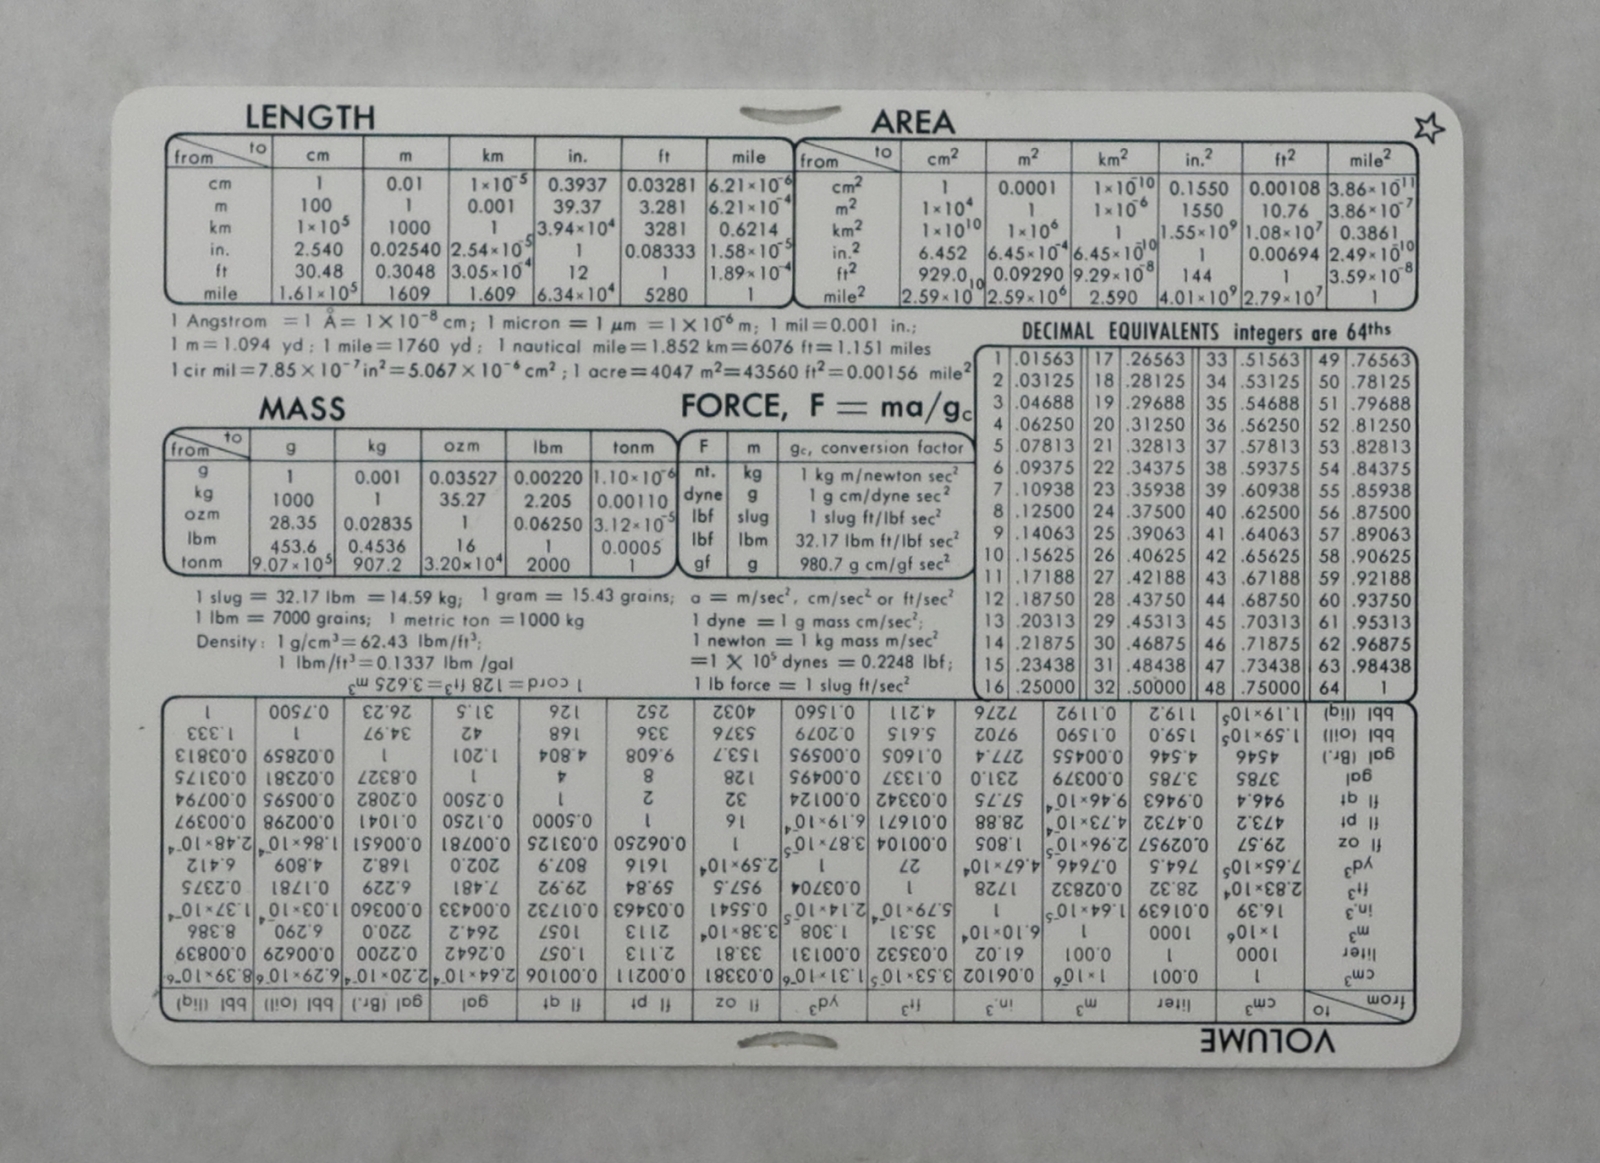 LENGTH
from to cm m km in. ft mile
cm 1 0.01 1×10⁻⁵ 0.3937 0.03281 6.21×10⁻⁶
m 100 1 0.001 39.37 3.281 6.21×10⁻⁴
km 1×10⁵ 1000 1 3.94×10⁴ 3281 0.6214
in. 2.540 0.02540 2.54×10⁻⁵ 1 0.08333 1.58×10⁻⁵
ft 30.48 0.3048 3.05×10⁻⁴ 12 1 1.89×10⁻⁴
mile 1.61×10⁵ 1609 1.609 6.34×10⁴ 5280 1
AREA
from to cm² m² km² in.² ft² mile²
cm² 1 0.0001 1×10⁻¹⁰ 0.1550 0.00108 3.86×10⁻¹¹
m² 1×10⁴ 1 1×10⁻⁶ 1550 10.76 3.86×10⁻⁷
km² 1×10¹⁰ 1×10⁶ 1 1.55×10⁹ 1.08×10⁷ 0.3861
in.² 6.452 6.45×10⁻⁴ 6.45×10⁻¹⁰ 1 0.00694 2.49×10⁻¹⁰
ft² 929.0 0.09290 9.29×10⁻⁸ 144 1 3.59×10⁻⁸
mile² 2.59×10¹⁰ 2.59×10⁶ 2.590 4.01×10⁹ 2.79×10⁷ 1
1 Angstrom = 1 Å = 1×10⁻⁸ cm; 1 micron = 1 μm = 1×10⁻⁶ m; 1 mil = 0.001 in.;
1 m = 1.094 yd; 1 mile = 1760 yd; 1 nautical mile = 1.852 km = 6076 ft = 1.151 miles
1 cir mil = 7.85×10⁻⁷ in² = 5.067×10⁻⁶ cm²; 1 acre = 4047 m² = 43560 ft² = 0.00156 mile²
DECIMAL EQUIVALENTS integers are 64ths
1 .01563 17 .26563 33 .51563 49 .76563
2 .03125 18 .28125 34 .53125 50 .78125
3 .04688 19 .29688 35 .54688 51 .79688
4 .06250 20 .31250 36 .56250 52 .81250
5 .07813 21 .32813 37 .57813 53 .82813
6 .09375 22 .34375 38 .59375 54 .84375
7 .10938 23 .35938 39 .60938 55 .85938
8 .12500 24 .37500 40 .62500 56 .87500
9 .14063 25 .39063 41 .64063 57 .89063
10 .15625 26 .40625 42 .65625 58 .90625
11 .17188 27 .42188 43 .67188 59 .92188
12 .18750 28 .43750 44 .68750 60 .93750
13 .20313 29 .45313 45 .70313 61 .95313
14 .21875 30 .46875 46 .71875 62 .96875
15 .23438 31 .48438 47 .73438 63 .98438
16 .25000 32 .50000 48 .75000 64 1
MASS
from to g kg ozm lbm tonm
g 1 0.001 0.03527 0.00220 1.10×10⁻⁶
kg 1000 1 35.27 2.205 0.00110
ozm 28.35 0.02835 1 0.06250 3.12×10⁻⁵
lbm 453.6 0.4536 16 1 0.0005
tonm 9.07×10⁵ 907.2 3.20×10⁴ 2000 1
FORCE, F = ma/gc
F m gc, conversion factor
nt. kg 1 kg m/newton sec²
dyne g 1 g cm/dyne sec²
lbf slug 1 slug ft/lbf sec²
lbf lbm 32.17 lbm ft/lbf sec²
gf g 980.7 g cm/gf sec²
1 slug = 32.17 lbm = 14.59 kg; 1 gram = 15.43 grains;
1 lbm = 7000 grains; 1 metric ton = 1000 kg
Density: 1 g/cm³ = 62.43 lbm/ft³;
1 lbm/ft³ = 0.1337 lbm /gal
a = m/sec², cm/sec² or ft/sec²
1 dyne = 1 g mass cm/sec²;
1 newton = 1 kg mass m/sec²
= 1 × 10⁵ dynes = 0.2248 lbf;
1 lb force = 1 slug ft/sec²
VOLUME
from to cm³ liter m³ in.³ ft³ yd³ fl oz fl pt fl qt gal gal (Br.) bbl (oil) bbl (liq)
cm³ 1 0.001 1×10⁻⁶ 0.06102 3.53×10⁻⁵ 1.31×10⁻⁶ 0.03381 0.00211 0.00106 2.64×10⁻⁴ 2.20×10⁻⁴ 6.29×10⁻⁶ 8.39×10⁻⁶
liter 1000 1 0.001 61.02 0.03532 0.00131 33.81 2.113 1.057 0.2642 0.2200 0.00629 0.00839
m³ 1×10⁶ 1000 1 6.10×10⁴ 35.31 1.308 3.38×10⁴ 2113 1057 264.2 220.0 6.290 8.386
in.³ 16.39 0.01639 1.64×10⁻⁵ 1 5.79×10⁻⁴ 2.14×10⁻⁵ 0.5541 0.03463 0.01732 0.00433 0.00360 1.03×10⁻⁴ 1.37×10⁻⁴
ft³ 2.83×10⁴ 28.32 0.02832 1728 1 0.03704 957.5 59.84 29.92 7.481 6.229 0.1781 0.2375
yd³ 7.65×10⁵ 764.5 0.7646 4.67×10⁴ 27 1 2.59×10⁴ 1616 807.9 202.0 168.2 4.809 6.412
fl oz 29.57 0.02957 2.96×10⁻⁵ 1.805 0.00104 3.87×10⁻⁵ 1 0.06250 0.03125 0.00781 0.00651 1.86×10⁻⁴ 2.48×10⁻⁴
fl pt 473.2 0.4732 4.73×10⁻⁴ 28.88 0.01671 6.19×10⁻⁴ 16 1 0.5000 0.1250 0.1041 0.00298 0.00397
fl qt 946.4 0.9463 9.46×10⁻⁴ 57.75 0.03342 0.00124 32 2 1 0.2500 0.2082 0.00595 0.00794
gal 3785 3.785 0.00379 231.0 0.1337 0.00495 128 8 4 1 0.8327 0.02381 0.03175
gal (Br.) 4546 4.546 0.00455 277.4 0.1605 0.00595 153.7 9.608 4.804 1.201 1 0.02859 0.03813
bbl (oil) 1.59×10⁵ 159.0 0.1590 9702 5.615 0.2079 5376 336 168 42 34.97 1 1.333
bbl (liq) 1.19×10⁵ 119.2 0.1192 7276 4.211 0.1560 4032 252 126 31.5 26.23 0.7500 1
1 cord = 128 ft³ = 3.625 m³